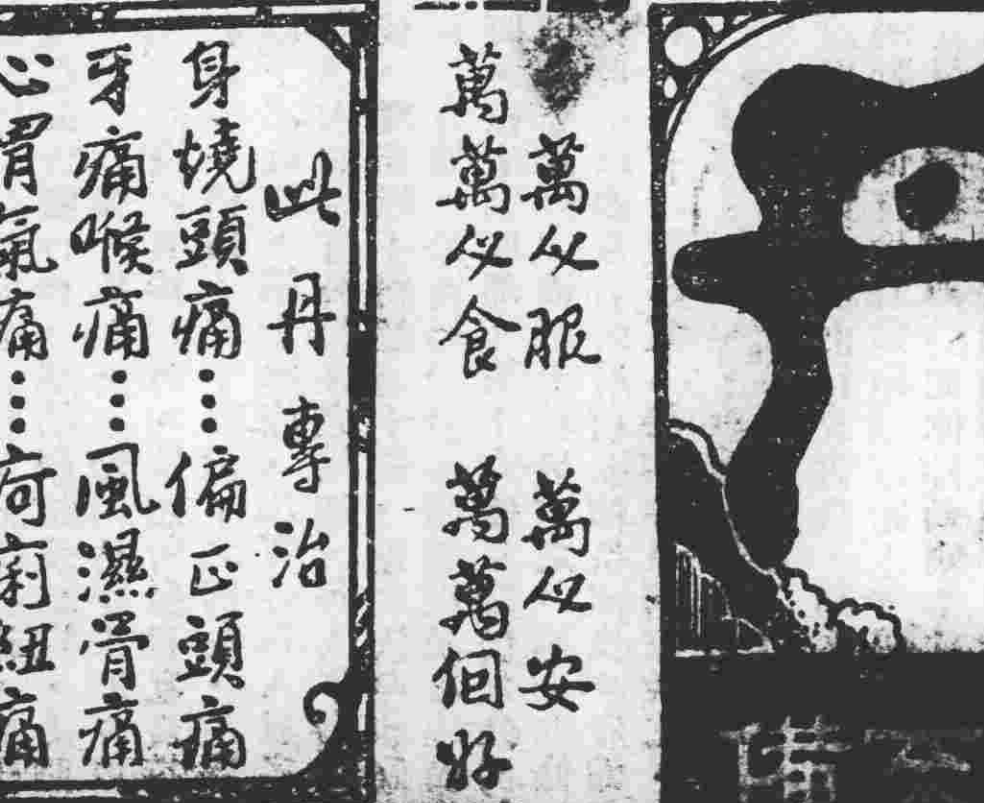 萬人服 萬人安
萬萬人食 萬萬個好
此丹專治
身燒頭痛⋮偏正頭痛
牙痛喉痛⋮風濕骨痛
心胃氣痛⋮疴痢紐痛